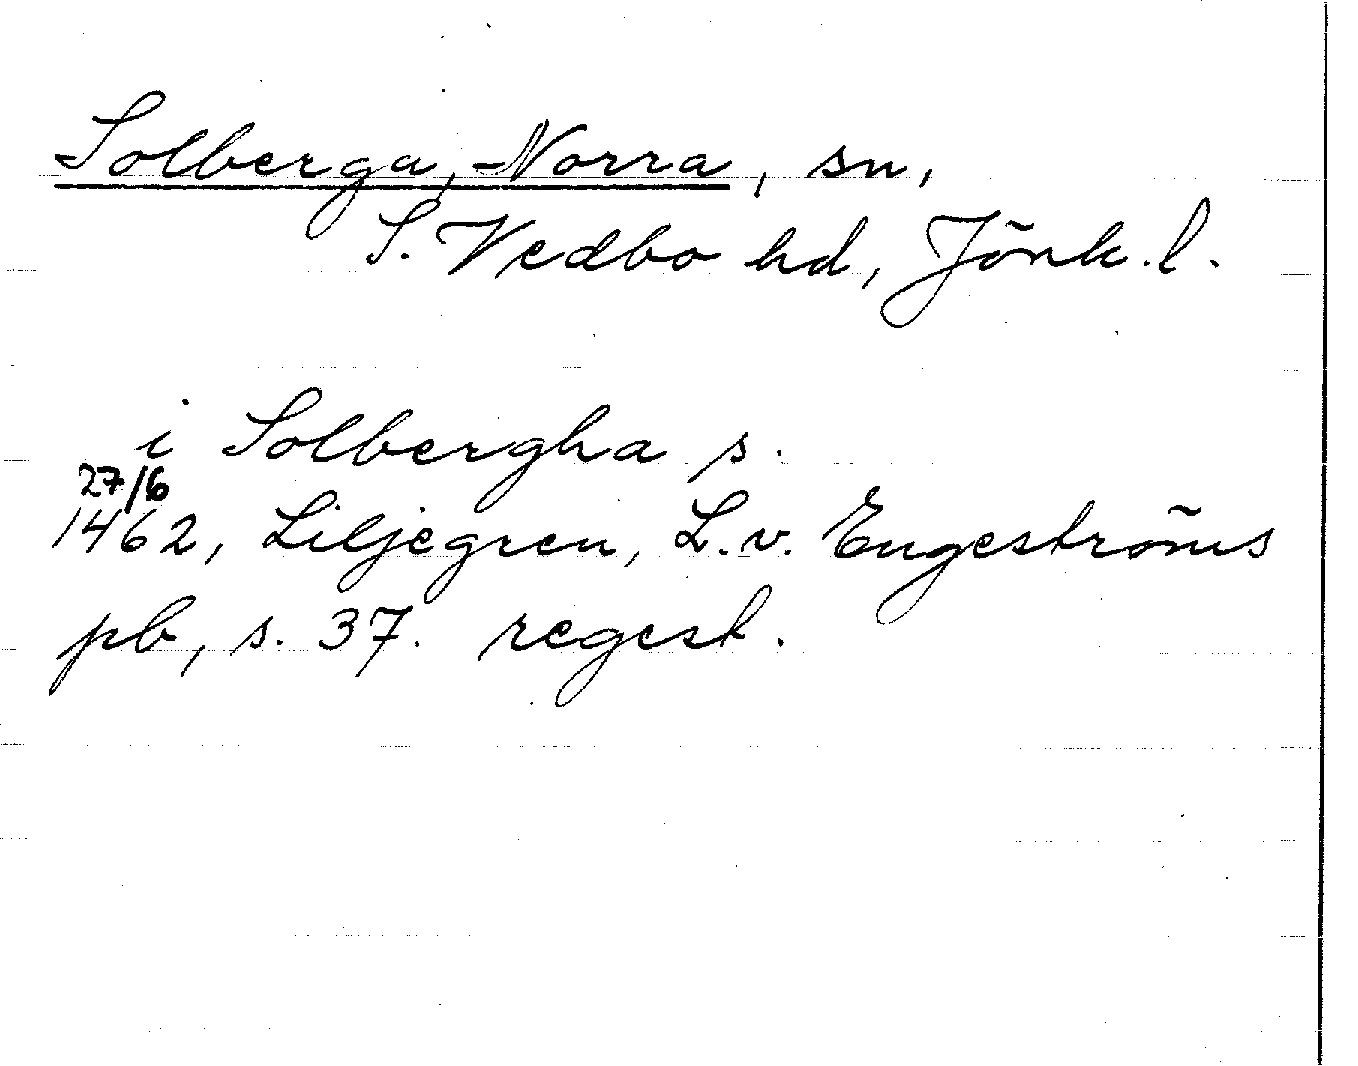 Solberga, Norra, sn,
S. Vedbo hd, Jönk. l.
i Solbergha s.
27/6
1462, Liljegren, L. v. Engeströms
pb, s. 37. regest.